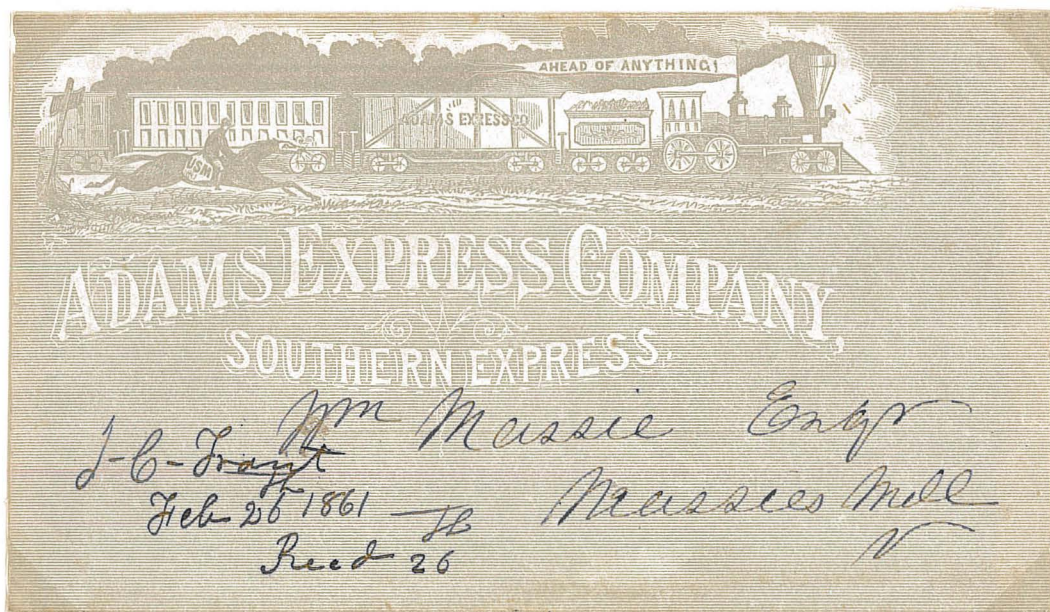 AHEAD OF ANYTHING!
ADAMS EXPRESS CO
USM
ADAMS EXPRESS COMPANY,
SOUTHERN EXPRESS.
Wm Massie Esqr
J-C-
Massies Mill
Feb 26th 1861
V
Recd 26